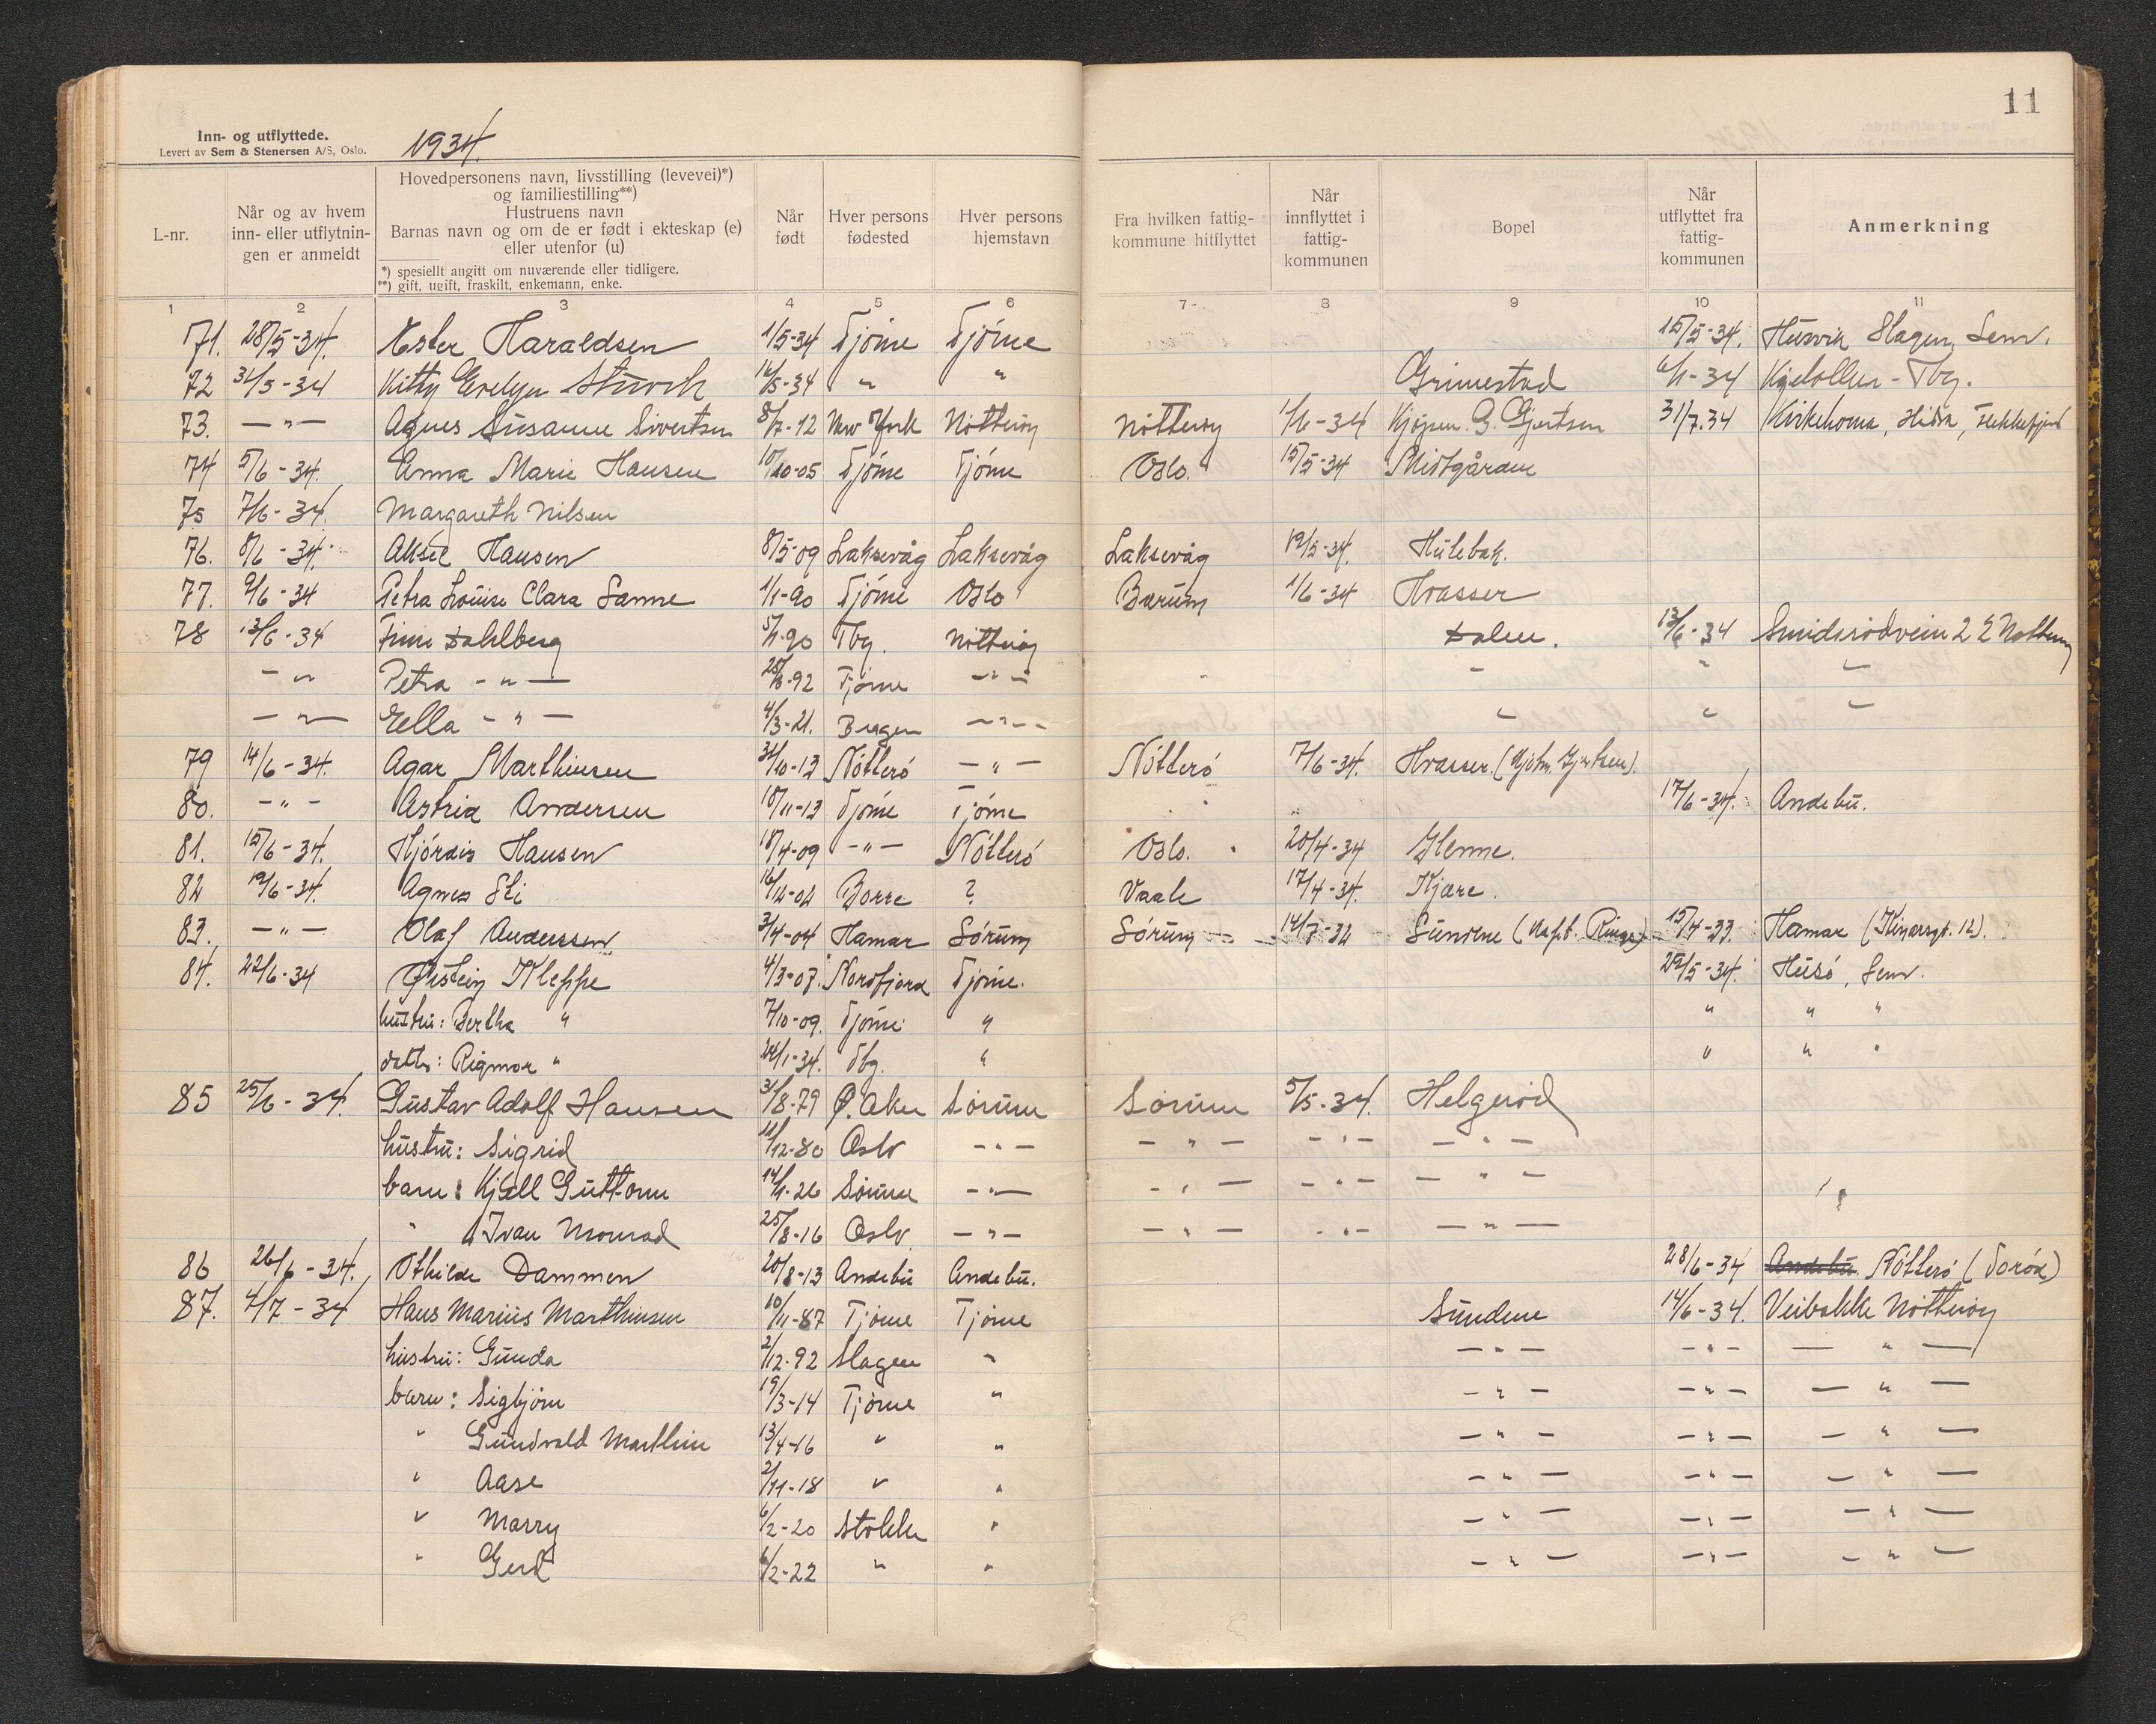 11
Inn- og utflyttede.
Levert av Sem & Stenersen A/S, Oslo.
1934.
L-nr.
Når og av hvem inn- eller utflytnin-gen er anmeldt
Hovedpersonens navn, livsstilling (levevei)*)
og familiestilling**)
Hustruens navn
Barnas navn og om de er født i ekteskap (e)
eller utenfor (u)
*) spesiellt angitt om nuværende eller tidligere.
**) gift, ugift, fraskilt, enkemann, enke.
Når født
Hver persons fødested
Hver persons hjemstavn
Fra hvilken fattig-kommune hitflyttet
Når innflyttet i fattig-kommunen
Bopel
Når utflyttet fra fattig-kommunen
Anmerkning
1 2 3 4 5 6 7 8 9 10 11
71. 28/5-34. Ester Haraldsen 1/5-34 Tjöme Tjöme 15/5-34. Husvik Slagen, Sem.
72 31/5-34 Kitty Evelyn 16/5-34 " " Grimestad 6/1-34 - Tbg.
73. -"- Agnes Susanne Sivertsen 8/7-12 New York Nötteröy Nötteröy 1/6-34 Kjöpm. G. Gjertsen 31/7.34 Kirkehavn, Hidra, Flekkefjord
74 5/6-34. Anna Marie Hansen 10/10-05 Tjöme Tjöme Oslo. 15/5-34 Midtgården
75 7/6-34. Margareth Nilsen
76. 8/6-34. Aksel Hansen 8/5-09 Laksevåg Laksevåg Laksevåg 19/5-34. Hulebak.
77. 9/6-34 Petra Louise Clara Sanne 1/1-90 Tjöme Oslo Bærum 1/6-34 Hvasser
78 13/6-34 Finn Dahlberg 5/1-90 Tbg. Nötteröy Dalen. 13/6-34 Smidsrödvein 22 Nötteröy
- " Petra -"- 25/8-92 Tjöme -"- - " -
-"- Ella -"- 4/3-21. Bergen -"- " " "
79 14/6-34. Agar Marthinsen 31/10-13 Nötterö -"- Nötterö 7/6-34. Hvasser. (Kjöbm. Gjertsen).
80. -"- Astrid Andersen 18/11-13 Tjöme Tjöme 17/6-34. Andebu.
81. 15/6-34. Hjördis Hansen 18/4-09 -"- Nötterö Oslo. 20/4-34 Glenne.
82 19/6-34. Agnes Sti 16/12-02 Borre ? Vaale 17/4-34. Kjære.
83. -"- Olaf Anderssen 3/4-04 Hamar Sörum Sörum 14/7-32 Sundene 15/4-33. Hamar
84. 22/6-34 Östein Kleppe 4/3-07. Nordfjord Tjöme. 29/5-34. Husö, Sem.
hustru: Bertha " 7/10-09. Tjöme " " " "
datter: Rigmor " 24/1-34. Tbg. " " " "
85 25/6-34. Gustav Adolf Hansen 31/8-79 Ø. Aker Sörum Sörum 5/5-34. Helgeröd
hustru: Sigrid 11/12-80 Oslo -"- -"- -"- -"-
barn: Kjell Guttorm 14/1-26 Sörum -"- -"- -"- -"-
" Ivan Monrad 25/8-16 Oslo. -"- -"- -"- -"-
86 26/6-34. Othilde Dammen 20/8-13 Andebu Andebu. 28/6-34 Andebu. Nötterö (Toröd)
87. 4/7-34 Hans Marius Marthinsen 10/11-87 Tjöme Tjöme Sundene 14/6-34. Veibakke Nötteröy
hustru: Gunda 2/12-92 Slagen " -"- -"- -"-
barn: Sigbjörn 19/3-14 Tjöme " -"- -"- -"-
" Gundvald Marthin 13/4-16 " " -"- -"- -"-
" Aase 2/11-18 " " -"- -"- -"-
" Marry 6/2-20 Stokke " -"- -"- -"-
" Gerd 6/2-22 " " -"- -"- -"-